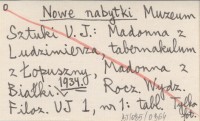 Nowe nabytki Muzeum
Sztuki U.J.: Madonna z
Ludzimierza, tabernakulum
z Łopusznej, Madonna z
Białki. 1934.
Rocz. Wydz.
Filoz. UJ 1, nr 1: tabl. Tylko
fot.